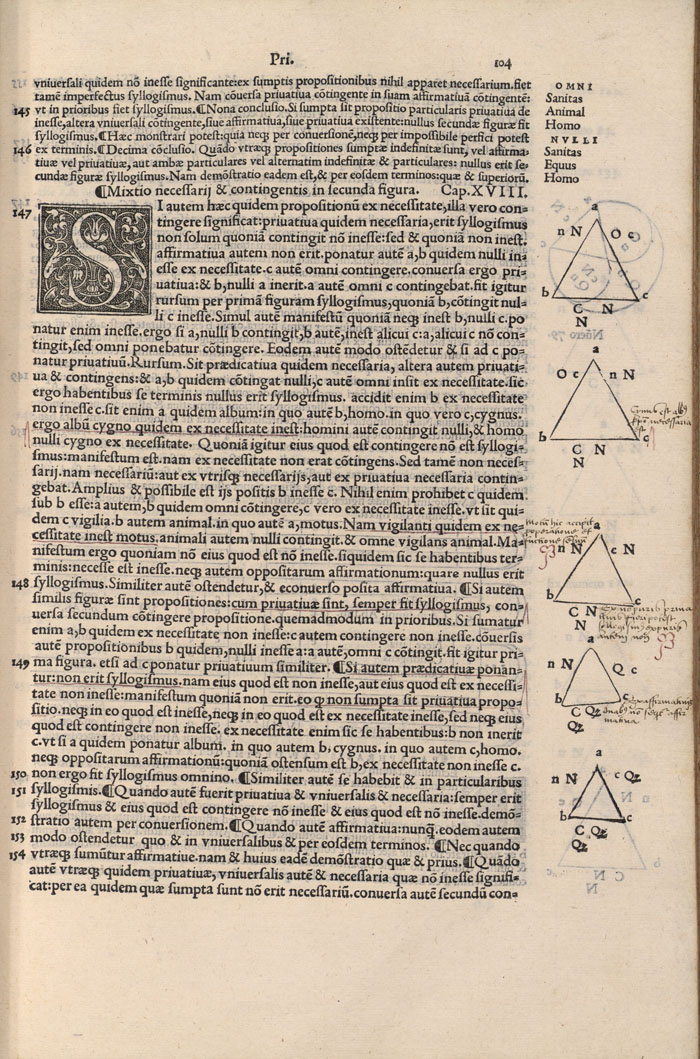 Pri.
104
vniuersali quidem nõ inesse significante:ex sumptis propositionibus nihil apparet necessarium.fiet
tamẽ imperfectus syllogismus. Nam cõuersa priuatiua cõtingente in suam affirmatiuã cõtingentẽ:
145 vt in prioribus fiet syllogismus. ¶Nona conclusio.Si sumpta sit propositio particularis priuatiua de
inesse,altera vniuersali cõtingente,siue affirmatiua,siue priuatiua existente:nullus secundæ figuræ fit
syllogismus.¶Hæc monstrari potest:quia neq; per conuersionẽ,neq; per impossibile perfici potest
146 ex terminis.¶Decima cõclusio. Quãdo vtræq; propositiones sumptæ indefinitæ sunt, vel affirma-
tiuæ vel priuatiuæ, aut ambæ particulares vel alternatim indefinitæ & particulares: nullus erit se-
cundæ figuræ syllogismus.Nam demõstratio eadem est,& per eosdem terminos:quæ & superiorũ.
OMNI
Sanitas
Animal
Homo
NVLLI
Sanitas
Equus
Homo
¶Mixtio necessarij & contingentis in secunda figura. Cap.XVIII.
147
SI autem hæc quidem propositionũ ex necessitate,illa vero con-
tingere significat:priuatiua quidem necessaria,erit syllogismus
non solum quoniã contingit nõ inesse:sed & quoniã non inest.
affirmatiua autem non erit.ponatur autẽ a,b quidem nulli in-
esse ex necessitate.c autẽ omni contingere.conuersa ergo pri-
uatiua:& b,nulli a inerit.a autẽ omni c contingebat.fit igitur
rursum per primã figuram syllogismus,quoniã b,cõtingit nul-
li c inesse.Simul autẽ manifestũ quoniã neq; inest b,nulli c.po
natur enim inesse.ergo si a,nulli b contingit,b autẽ,inest alicui c:a,alicui c nõ con-
tingit,sed omni ponebatur cõtingere. Eodem autẽ modo ostẽdetur & si ad c po-
natur priuatiuũ.Rursum.Sit prædicatiua quidem necessaria, altera autem priuati-
ua & contingens:& a,b quidem cõtingat nulli,c autẽ omni insit ex necessitate.sic
ergo habentibus se terminis nullus erit syllogismus. accidit enim b ex necessitate
non inesse c.sit enim a quidem album:in quo autẽ b,homo.in quo vero c,cygnus.
ergo albũ cygno quidem ex necessitate inest:homini autẽ contingit nulli,& homo
nulli cygno ex necessitate. Quoniã igitur eius quod est contingere nõ est syllogi-
smus:manifestum est.nam ex necessitate non erat cõtingens.Sed tamẽ non neces-
sarij.nam necessariũ:aut ex vtrisq; necessarijs,aut ex priuatiua necessaria contin-
gebat.Amplius & possibile est ijs positis b inesse c. Nihil enim prohibet c quidem
sub b esse:a autem,b quidem omni cõtingere,c vero ex necessitate inesse.vt sit qui-
dem c vigilia.b autem animal.in quo autẽ a,motus.Nam vigilanti quidem ex ne-
cessitate inest motus.animali autem nulli contingit.& omne vigilans animal.Ma-
nifestum ergo quoniam nõ eius quod est nõ inesse.siquidem sic se habentibus ter-
minis:necesse est inesse.neq; autem oppositarum affirmationum:quare nullus erit
148 syllogismus.Similiter autẽ ostendetur,& econuerso posita affirmatiua. ¶Si autem
similis figuræ sint propositiones:cum priuatiuæ sint, semper fit syllogismus, con-
uersa secundum cõtingere propositione.quemadmodum in prioribus.Si sumatur
enim a,b quidem ex necessitate non inesse:c autem contingere non inesse.cõuersis
autẽ propositionibus b quidem,nulli inesse a:a autẽ,omni c cõtingit.fit igitur pri-
149 ma figura. etsi ad c ponatur priuatiuum similiter. ¶Si autem prædicatiuæ ponan-
tur:non erit syllogismus.nam eius quod est non inesse,aut eius quod est ex necessi-
tate non inesse:manifestum quoniã non erit.eo q non sumpta sit priuatiua propo-
sitio.neq; in eo quod est inesse,neq; in eo quod est ex necessitate inesse,sed neq; eius
quod est contingere non inesse. ex necessitate enim sic se habentibus:b non inerit
c.vt si a quidem ponatur album. in quo autem b, cygnus. in quo autem c,homo.
neq; oppositarum affirmationũ:quoniã ostensum est b,ex necessitate non inesse c.
150 non ergo fit syllogismus omnino. ¶Similiter autẽ se habebit & in particularibus
151 syllogismis.¶Quando autẽ fuerit priuatiua & vniuersalis & necessaria:semper erit
syllogismus & eius quod est contingere nõ inesse & eius quod est nõ inesse.demõ-
152 stratio autem per conuersionem. ¶Quando autẽ affirmatiua:nunq̃.eodem autem
153 modo ostendetur quo & in vniuersalibus & per eosdem terminos. ¶Nec quando
154 vtræq; sumũtur affirmatiue.nam & huius eadẽ demõstratio quæ & prius.¶Quãdo
autẽ vtræq; quidem priuatiuæ, vniuersalis autẽ & necessaria quæ nõ inesse signifi-
cat:per ea quidem quæ sumpta sunt nõ erit necessariũ.conuersa autẽ secundũ con-
a
n N
O c
b
c
C N
N
a
O c
n N
b
c
C N
N
a
n N
c N
b
c
C N
N
a
n N
Q c
b
c
C Qz
Qz
a
n N
c Qz
b
c
C Qz
Qz